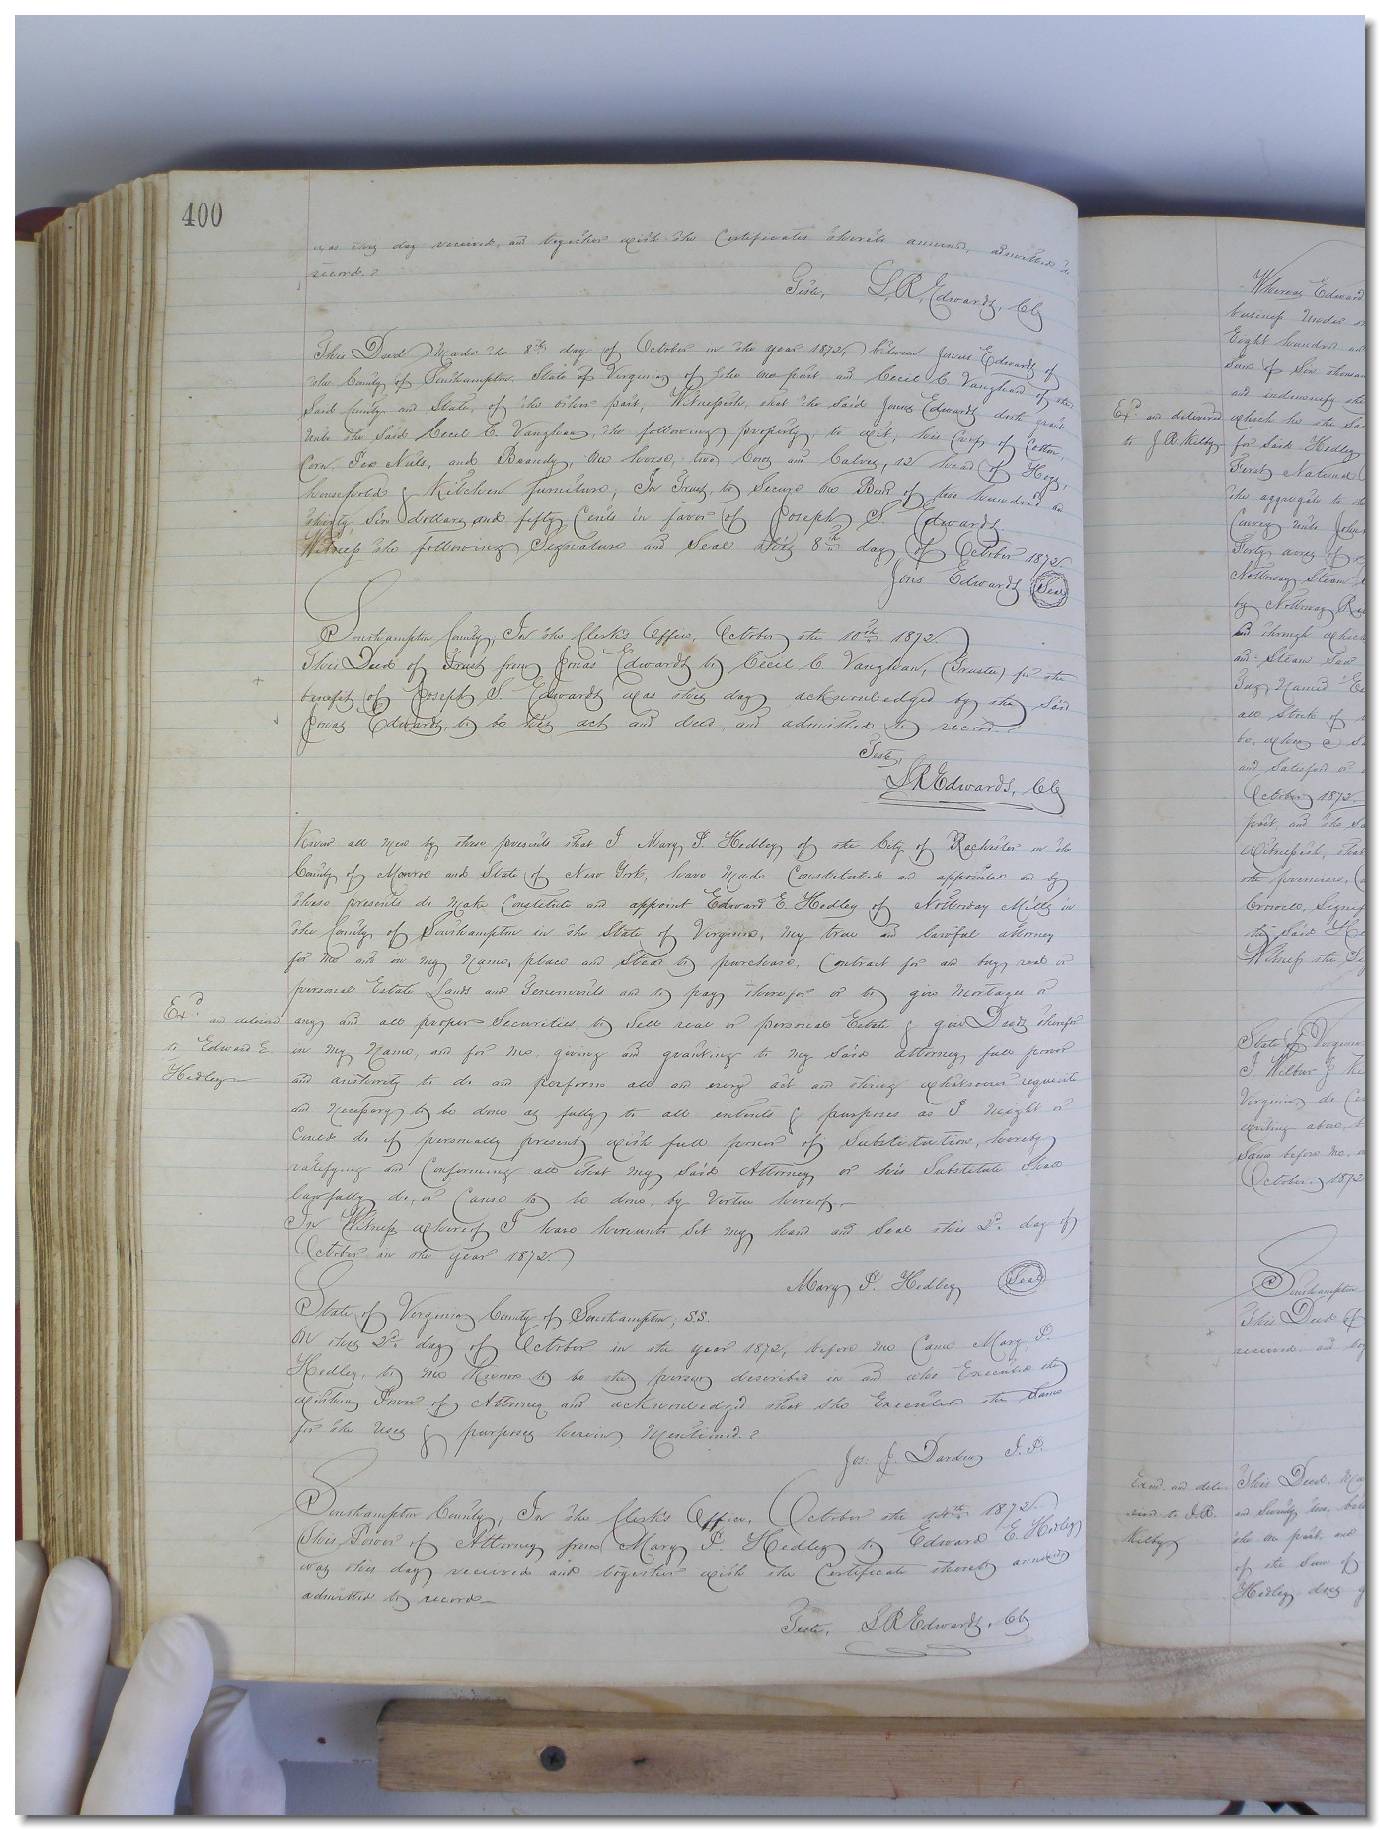 400
was this day received, and together with the Certificates thereto annexed, admitted to
record.
Teste, L.R. Edwards, Clk
This Deed Made the 8th day of October in the year 1872, between Jonas Edwards of
the County of Southampton, State of Virginia, of the one part and Cecil C. Vaughan of the
Said County and State, of the other part, Witnesseth, that the Said Jonas Edwards doth grant
unto the Said Cecil C. Vaughan, the following property, to wit, his Crop of Cotton,
Corn, Pea Nuts, and Brandy, One horse, two Cows and Calves, 12 head of Hogs,
household & Kitchen furniture, In Trust, to Secure One Bond of two hundred and
thirty Six dollars and fifty Cents in favor of Joseph S. Edwards
Witness the following Signature and Seal this 8th day of October 1872
Jonas Edwards Seal
Southampton County, In the Clerk's Office, October the 10th 1872
This Deed of Trust from Jonas Edwards to Cecil C. Vaughan, (Trustee) for the
benefit of Joseph S. Edwards was this day acknowledged by the Said
Jonas Edwards, to be his act and deed, and admitted to record.
Teste,
L.R. Edwards, Clk
Know all Men by these presents that I Mary P. Hedley of the City of Rochester in the
County of Monroe and State of New York, have Made Constituted and appointed and by
these presents do Make Constitute and appoint Edward E. Hedley of Nottoway Mills in
the County of Southampton in the State of Virginia, My true and lawful attorney
for Me and in My Name, place and Stead to purchase, Contract for and buy real or
personal Estate Lands and Tenements and to pay therefor or to give Mortages or
Exd. and delivered
to Edward E.
Hedley
any and all proper Securities, to Sell real or personal Estate & give Deeds therefor
in My Name, and for Me, giving and granting to My Said attorney full power
and authority to do and perform all and every act and thing whatsoever requisite
and Necessary to be done as fully to all intents & purposes as I Might or
Could do if personally present, with full power of Substitution, hereby
ratifying and Confirming all that My Said Attorney or his Substitute Shall
lawfully do, or Cause to be done, by Virtue hereof.
In Witness whereof I have hereunto Set My hand and Seal this 2d. day of
October in the year 1872
Mary P. Hedley Seal
State of Virginia County of Southampton, S.S.
On this 2d. day of October in the year 1872, before Me Came Mary P.
Hedley, to Me Known to be the person described in and who Executed the
within Power of Attorney and acknowledged that She Executed the Same
for the Uses & purposes herein Mentioned.
Jos. J. Darden J.P.
Southampton County, In the Clerk's Office, October the 1872
This Power of Attorney from Mary P. Hedley to Edward E. Hedley
was this day received and together with the Certificate thereto annexed
admitted to record
Teste, L.R. Edwards, Clk
Whereas Edward
business Under
Eight hundred
Sum of Six thousand
and indemnify the
Exd. and delivered
to J.R. Kilby
which he the
for Said Hedley
First National
the aggregate to
Convey Unto John
Forty acres of
Nottoway Steam
by Nottoway
and through which
and Steam Saw
Tug Named
all Stock of
be,
and Satisfied or
October 1872
part, and the
Witnesseth, that
the premises,
Crowell,
the Said
Witness the
State of Virginia
I Wilbur J.
Virginia do
writing above,
Same before Me,
October, 1872
Southampton
This Deed of
record and
Exd. and deliv-
ered to J.R.
Kilby
This Deed, Ma
and Seventy two,
the one part, and
of the Sum of
Hedley does